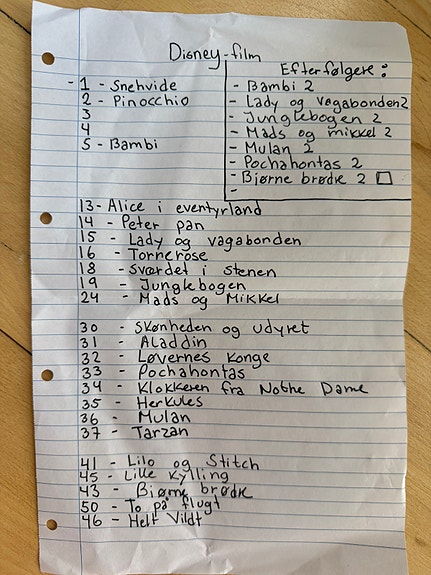 Disney-film
- 1 - Snehvide
2 - Pinocchio
3
4
5 - Bambi
Efterfølgere:
- Bambi 2
- Lady og vagabonden 2
- Junglebogen 2
- Mads og mikkel 2
- Mulan 2
- Pochahontas 2
- Bjørne brødre 2
-
13 - Alice i eventyrland
14 - Peter pan
15 - Lady og vagabonden
16 - Tornerose
18 - Sværdet i stenen
19 - Junglebogen
24 - Mads og Mikkel
30 - Skønheden og udyret
31 - Aladdin
32 - Løvernes konge
33 - Pochahontas
34 - Klokkeren fra Nothe Dame
35 - Herkules
36 - Mulan
37 - Tarzan
41 - Lilo og Stitch
45 - Lille kylling
43 - Bjørne brødre
50 - To på flugt
46 - Helt Vildt